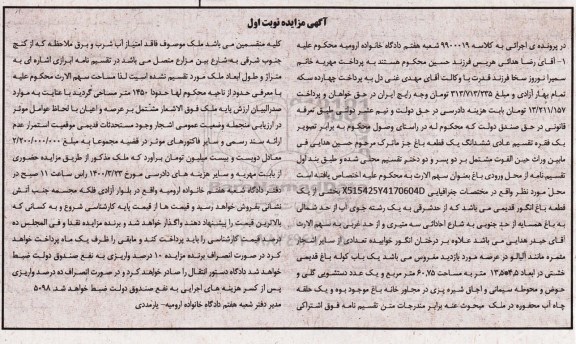 آگهی مزایده نوبت اول
در پرونده ی اجرائی به کلاسه ۹۹۰۰۰۱۹ شعبه هفتم دادگاه خانواده ارومیه محکوم علیه
۱- آقای رضا هدائی هریس فرزند حسین محکوم هستند به پرداخت مهریه خانم
سمیرا نوروز سخا فرزند قدرت با وکالت آقای مهدی غنی دل به پرداخت چهارده سکه
تمام بهار آزادی و مبلغ ۳۱۳/۷۱۳/۲۳۵ تومان وجه رایج ایران در حق خواهان و پرداخت
۱۳/۲۱۱/۱۵۷ تومان بابت هزینه دادرسی در حق دولت و نیم عشر دولتی طبق تعرفه
قانونی در حق صندق دولت که محکوم له در راستای وصول محکوم به برابر تصویر
یک فقره تقسیم عادی ششدانگ یک قطعه باغ جز ماترک مرحوم حسین هدایی فی
مابین وراث حین الفوت مشتمل بر دو پسر و دو دختر تقسیم محلی شده و طبق بند اول
تقسیم نامه از محل ورودی باغ بعنوان سهم الارث به محکوم علیه اختصاص یافته است
محل مورد نظر واقع در مختصات جغرافیایی X515425Y4170604D بخشی از یک
قطعه باغ انگور قدیمی می باشد که از حدشرقی به یک رشته جوی آب از حد شمالی
به باغ همسایه از حد جنوبی به شارع احداثی سه متیری و از حد غربی به سهم الارث
آقای حیدر هدایی می باشد علاوه بر درختان انگور خوابیده تعدادی از سایر اشجار
مثمره مانند آلبالو در عرصه مورد بازدید مغروس می باشد یک باب کوله باغ قدیمی
خشتی در ابعاد ۴٫۵*۱۳٫۵ متر به مساحت ۶۰.۷۵ متر مربع و یک عدد دستشویی گلی و
حوض و محوطه سیمانی و اجاق شیره پزی در مجاور خانه باغ موجود بوه و یک حلقه
چاه آب محفوره در ملک مبحوث عنه برابر مندرجات متن تقسیم نامه فوق اشتراکی
کلیه متقسمین می باشد ملک موصوف فاقد امتیاز آب شرب و برق ملاحظه که از کنج
جنوب شرقی به شارع بین مزارع متصل می باشد در تقسیم نامه ابرازی اشاره ای به
متراژ و طول ابعاد ملک مورد تقسیم نشده است لذا مساحت سهم الارث محکوم علیه
با معرفی حدود از ناحیه محکوم لها حدودا ۱۴۵۰ متر مساحی گردید با عنایت به موارد
صدرالبیان ارزش پایه ملک فوق الاشعار مشتمل بر عرصه و اعیان با لحاظ عوامل موثر
در ارزیابی منجمله وضعیت عمومی اشجار وجود مستحدثات قدیمی موقعیت استمرار عدم
ارائه سند رسمی و سایر فاکتورهای موثر در قضیه مجموعا به مبلغ ۲/۲۰۰/۰۰۰/۰۰۰
معادل دویست و بیست میلیون تومان برآورد که ملک مذکور از طریق مزایده حضوری
از بابت مهریه و سایر هزینه های دادرسی مورخ ۱۴۰۰/۳/۲۳ راس ساعت ۱۱ صبح در
دفتر دادگاه شعبه هفتم خانواده ارومیه واقع در بلوار آزادی فلکه مجسمه جنب آتش
نشانی بفروش خواهد رسید و قیمت ها از قیمت پایه کارشناسی شروع و به کسانی که
بالاترین قیمت را پیشنهاد دهند واگذار خواهد شد و برنده مزایده نقدا و فی المجلس ده
درصد قیمت کارشناسی را باید پرداخت کند و مابقی را ظرف یک ماه پرداخت خواهد
کرد در صورت انصراف برنده مزایده ۱۰ درصد واریزی به نفع صندوق دولت ضبط
خواهد شد دادگاه دستور انتقال را صادر خواهد کرد و در صورت انصراف ده درصد واریزی
پس از کسر هزینه های اجرایی به نفع صندوق دولت ضبط خواهد شد ۵۰۹۸
مدیر دفتر شعبه هفتم دادگاه خانواده ارومیه- یارمددی